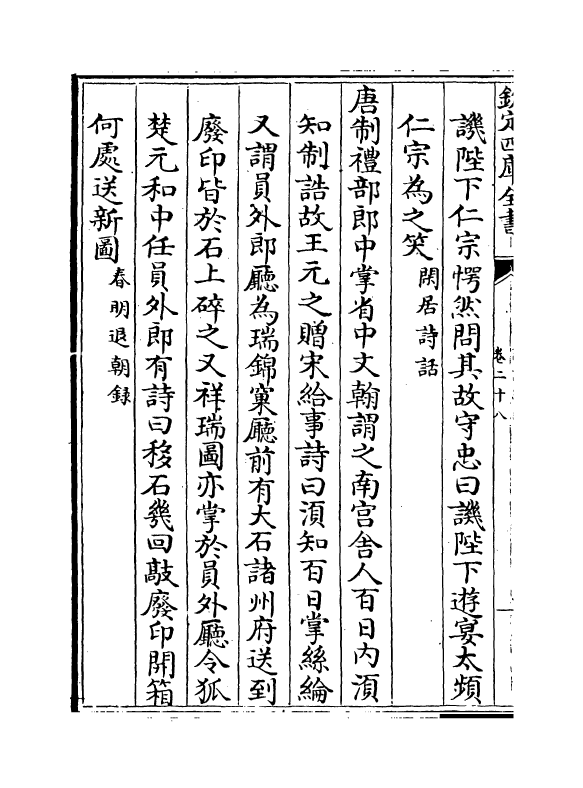 欽定四庫全書
卷二十八
譏陛下仁宗愕然問其故守忠曰譏陛下遊宴太頻
仁宗為之笑閑居詩話
唐制禮部郎中掌省中文翰謂之南宫舍人百日内湏
知制誥故王元之贈宋給事詩曰湏知百日掌絲綸
又謂員外郎廳為瑞錦窠廳前有大石諸州府送到
廢印皆於石上碎之又祥瑞圖亦掌於員外廳令狐
楚元和中任員外郎有詩曰移石幾回敲廢印開箱
何處送新圖春明退朝録